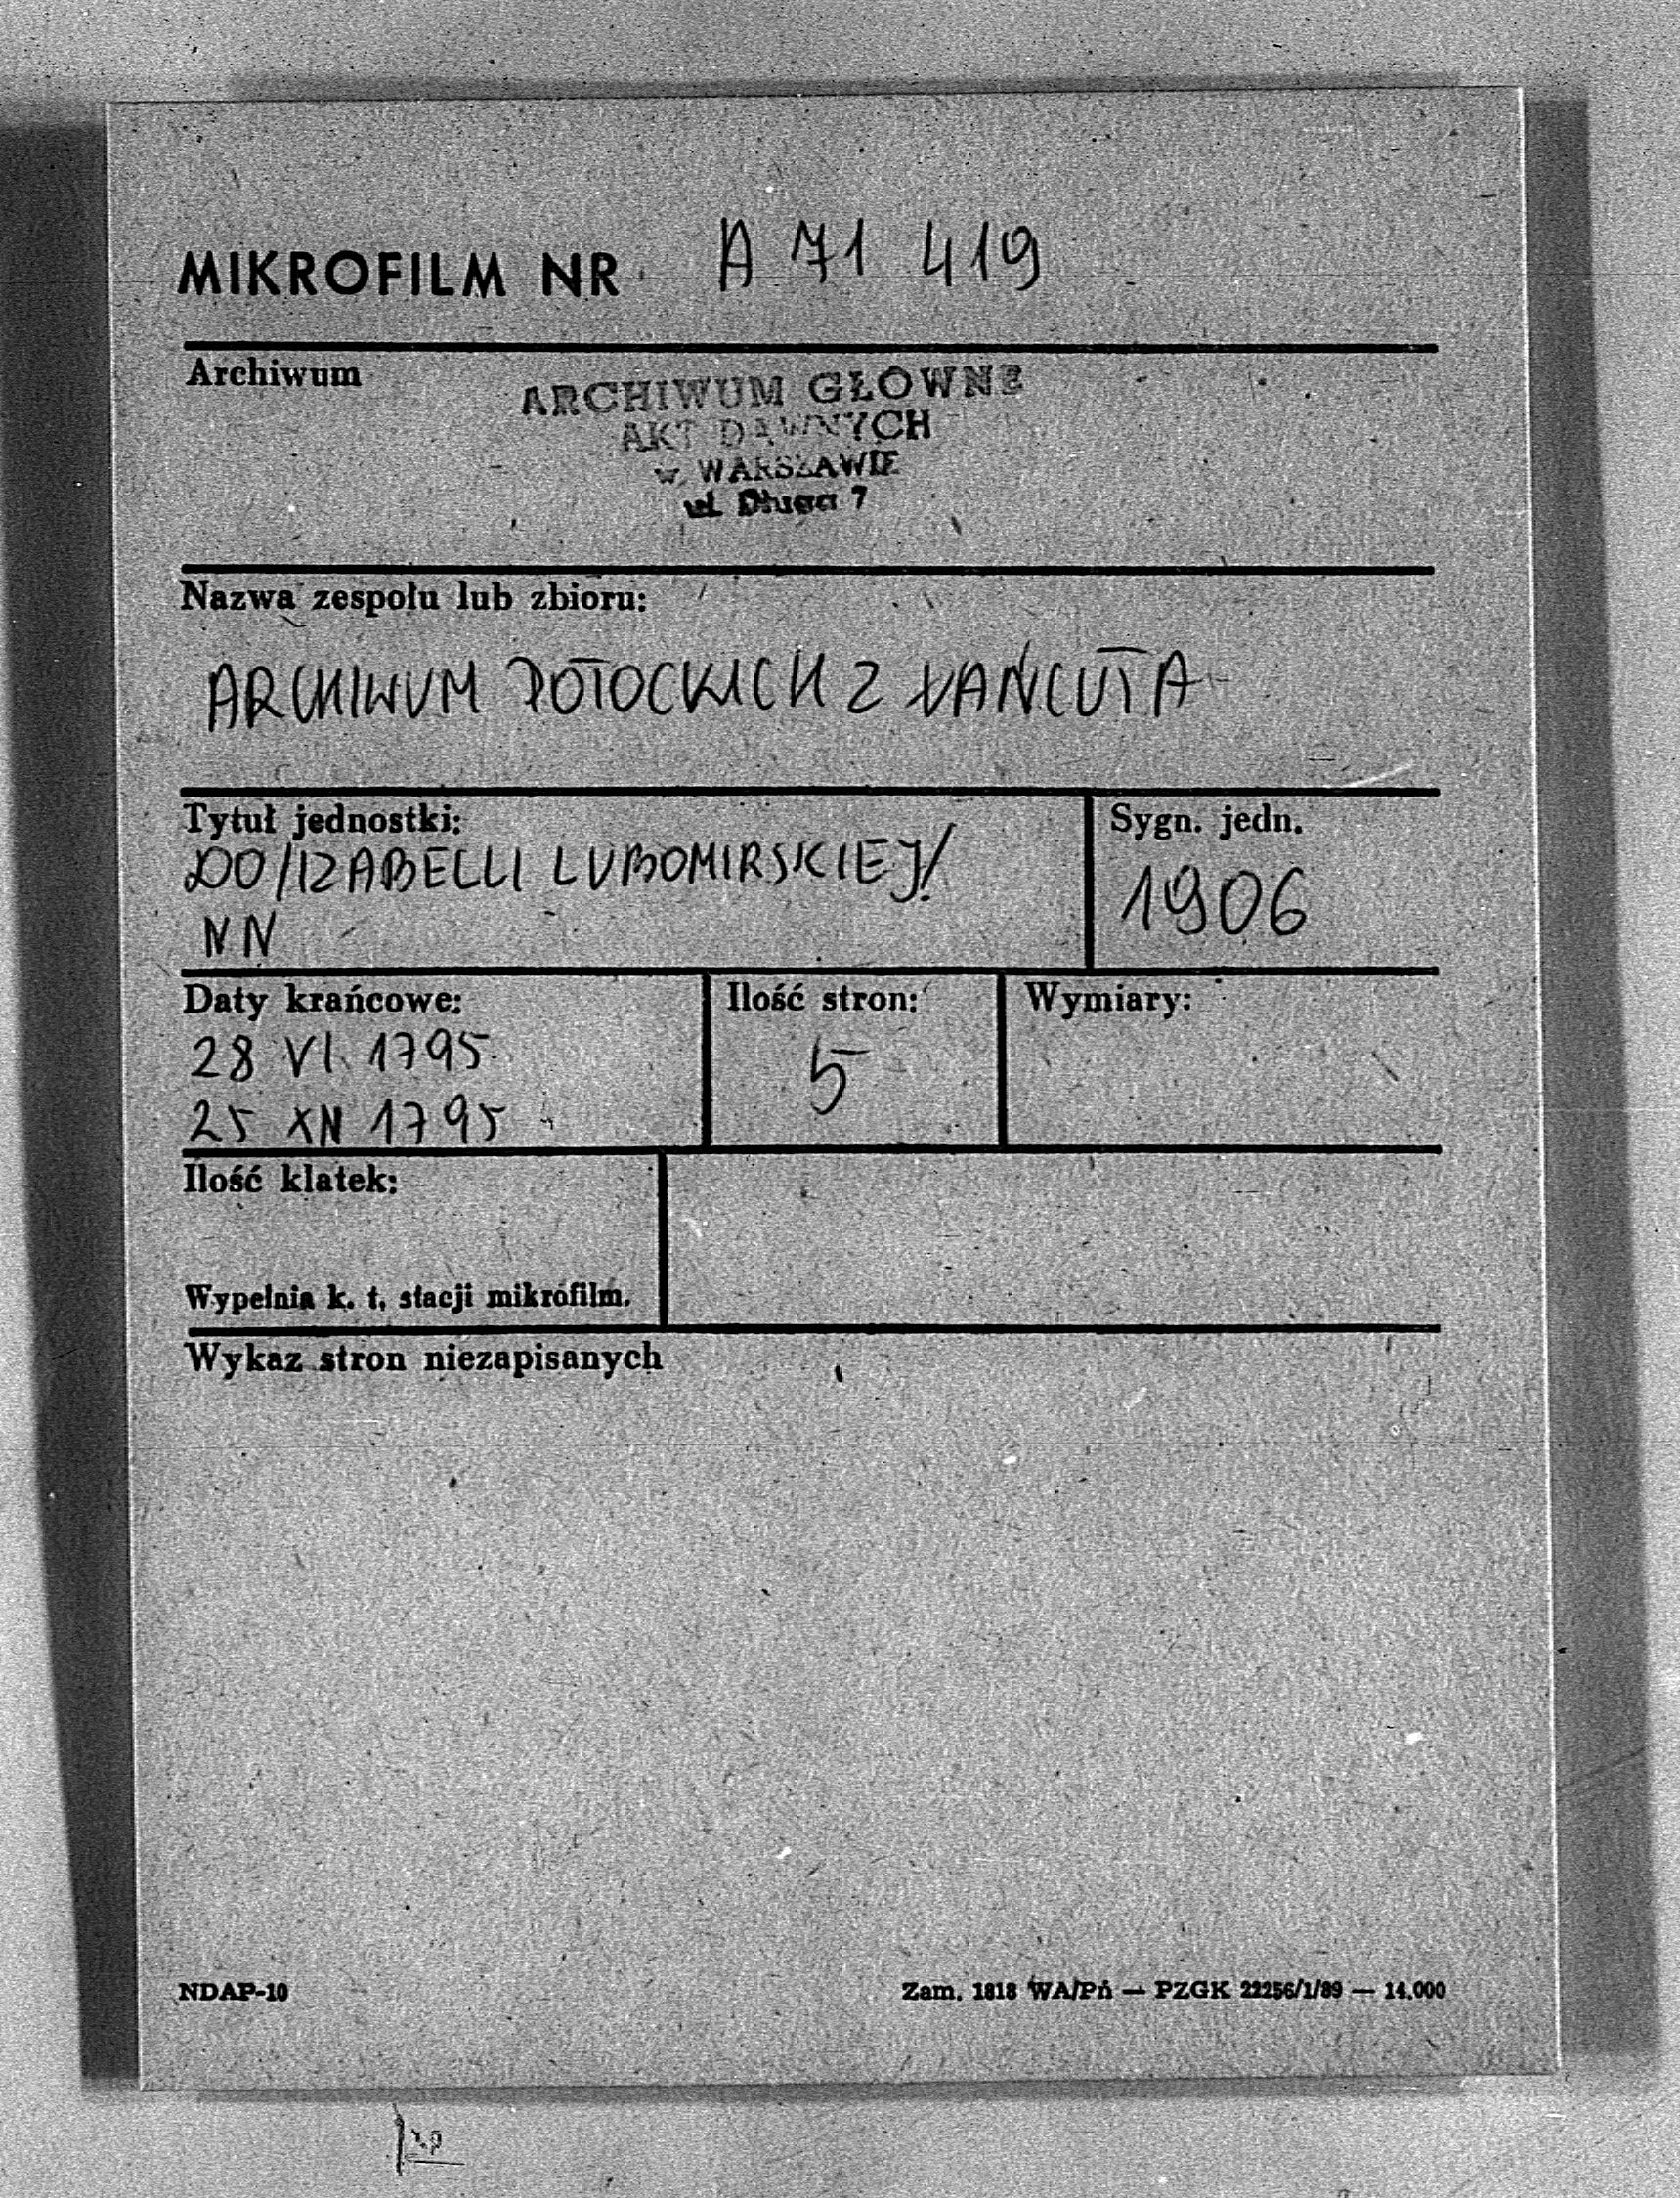 MIKROFILM NR A 71 419
Archiwum
ARCHIWUM GŁÓWNE
AKT DAWNYCH
w WARSZAWIE
ul. Długa 7
Nazwa zespołu lub zbioru:
ARCHIWUM POTOCKICH Z ŁAŃCUTA
Tytuł jednostki:
DO /IZABELLI LUBOMIRSKIEJ/
NN
Sygn. jedn.
1906
Daty krańcowe:
28 VI 1795
25 XII 1795
Ilość stron:
5
Wymiary:
Ilość klatek:
Wypełnia k. t. stacji mikrofilm.
Wykaz stron niezapisanych
NDAP-10
Zam. 1818 WA/Pń — PZGK 22256/1/89 — 14.000